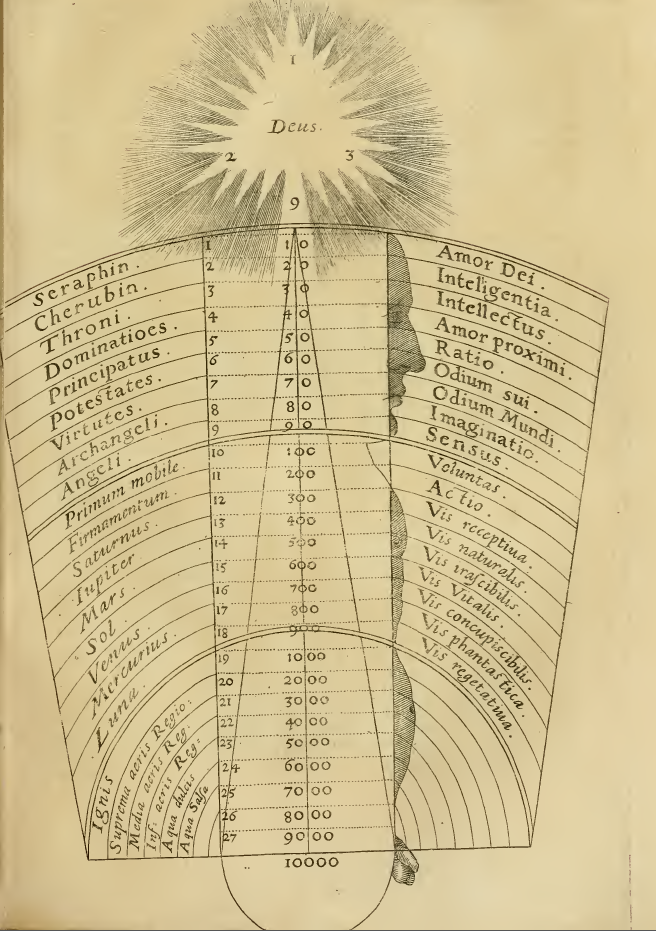 1
Deus.
2 3
9
Seraphin. 1 10 Amor Dei.
Cherubin. 2 20 Inteligentia.
Throni. 3 30 Intellectus.
Dominatioes. 4 40 Amor proximi.
Principatus. 5 50 Ratio.
Potestates. 6 60 Odium sui.
Virtutes. 7 70 Odium Mundi.
Archangeli. 8 80 Imaginatio.
Angeli. 9 90 Sensus.
Primum mobile. 10 100 Voluntas.
Firmamentum. 11 200 Actio.
Saturnus. 12 300 Vis receptiua.
Iupiter. 13 400 Vis naturalis.
Mars. 14 500 Vis irascibilis.
Sol. 15 600 Vis Vitalis.
Venus. 16 700 Vis concupiscibilis.
Mercurius. 17 800 Vis phantastica.
Luna. 18 900 Vis regetatiua.
Ignis 19 1000
Suprema aeris Regio: 20 2000
Media aeris Reg. 21 3000
Inf: aeris Reg: 22 4000
Aqua dulcis 23 5000
Aqua Salsa 24 6000
25 7000
26 8000
27 9000
10000